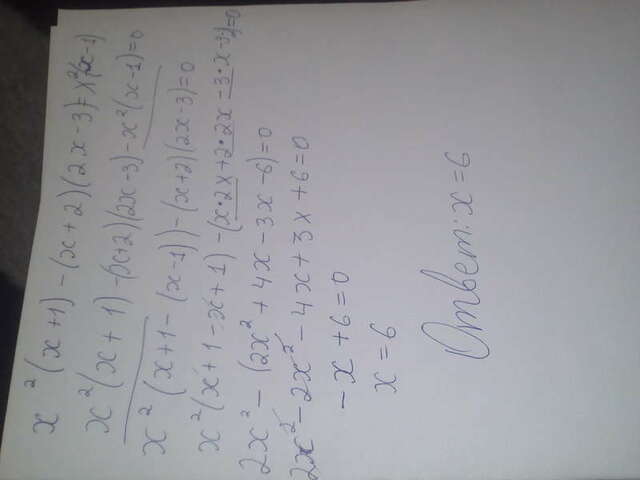 x² (x+1) - (x+2)(2x-3) = x²(x-1)
x²(x+1) - (x+2)(2x-3) - x²(x-1)=0
x² (x+1-(x-1)) - (x+2)(2x-3)=0
x²(x+1-x+1) - (x·2x+2·2x-3·x-3·2)=0
2x² - (2x²+4x-3x-6)=0
2x²-2x²-4x+3x+6=0
-x+6=0
x=6
Ответ: x=6